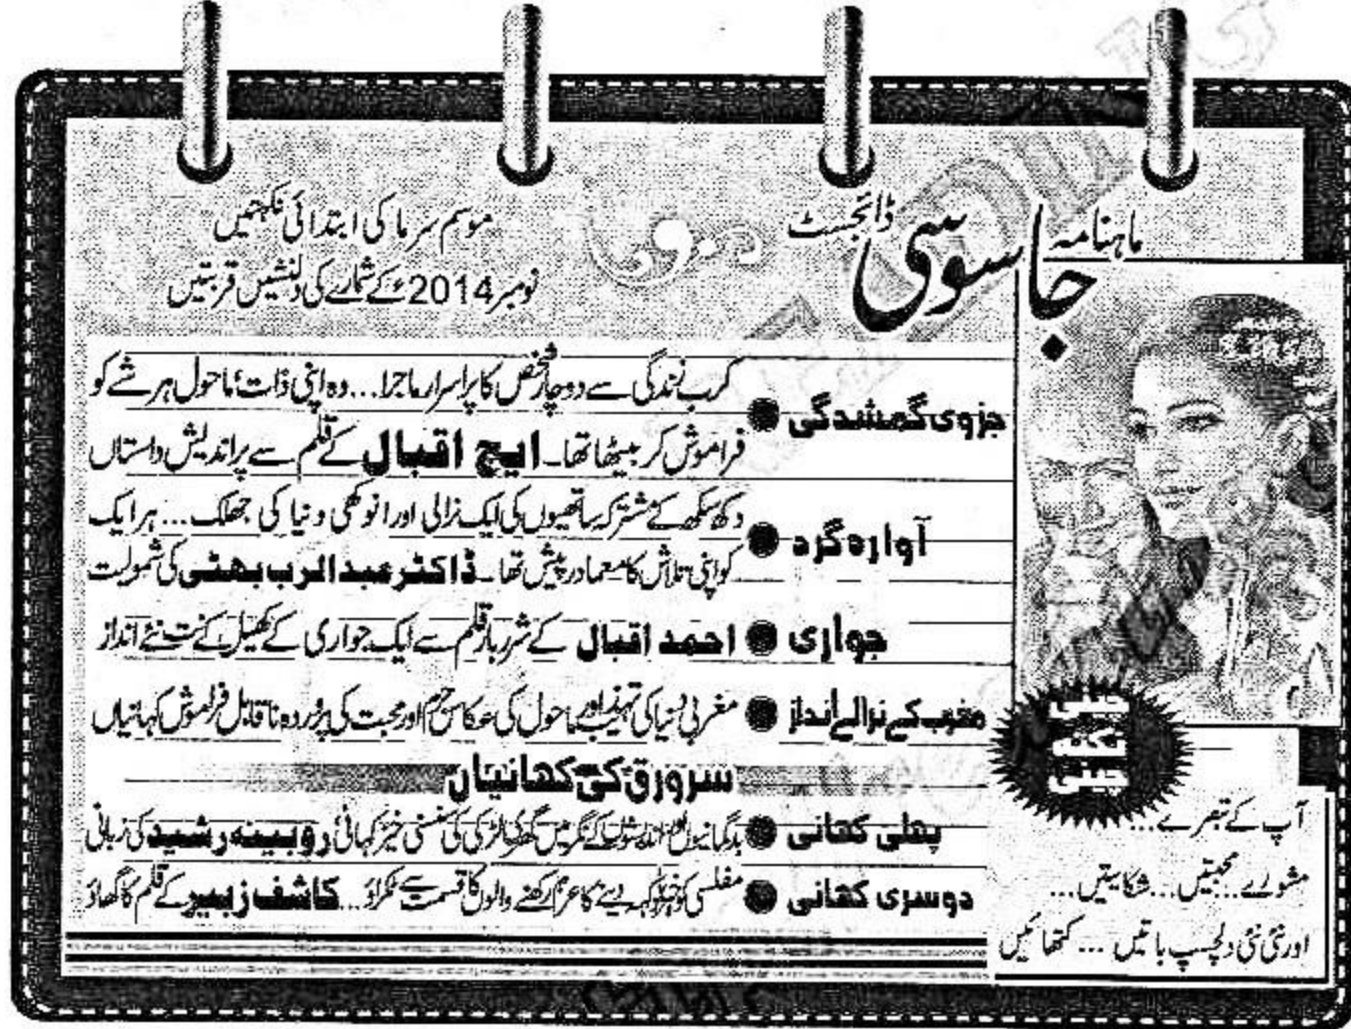 ماہنامہ
جاسوسی
ڈائجسٹ
موسم سرما کی ابتدائی نکہتیں
نومبر 2014ء کے شمارے کی دلنشیں قربتیں
جزوی گمشدگی
کرب زندگی سے دوچار شخص کا پراسرار ماجرا... وہ اپنی ذات، ماحول ہر شے کو
فراموش کر بیٹھا تھا۔ ایچ اقبال کے قلم سے پراندیش داستاں
آوارہ گرد
دکھ سکھ کے مشترکہ ساتھیوں کی ایک نرالی اور انوکھی دنیا کی جھلک... ہر ایک
کو اپنی تلاش کا معما درپیش تھا۔ ڈاکٹر عبدالرب بھٹی کی شمولیت
جواری
احمد اقبال کے شرربار قلم سے ایک جواری کے کھیل کے نت نئے انداز
مغرب کے نرالے انداز
مغربی دنیا کی تہذیب اور ماحول کی عکاس جرم اور محبت کی پروردہ ناقابل فراموش کہانیاں
سرورق کی کہانیاں
پہلی کہانی
بدگمانیوں اور اندیشوں کے نگر میں گھری لڑکی کی سنسنی خیز کہانی روبینہ رشید کی زبانی
دوسری کہانی
مفلسی کو خیرباد کہہ دینے کا عزم رکھنے والوں کا قسمت سے ٹکراؤ... کاشف زبیر کے قلم کا گھاؤ
چینی
نکتہ
چینی
آپ کے تبصرے...
مشورے... محبتیں... شکایتیں...
اور نئی نئی دلچسپ باتیں... کتھائیں